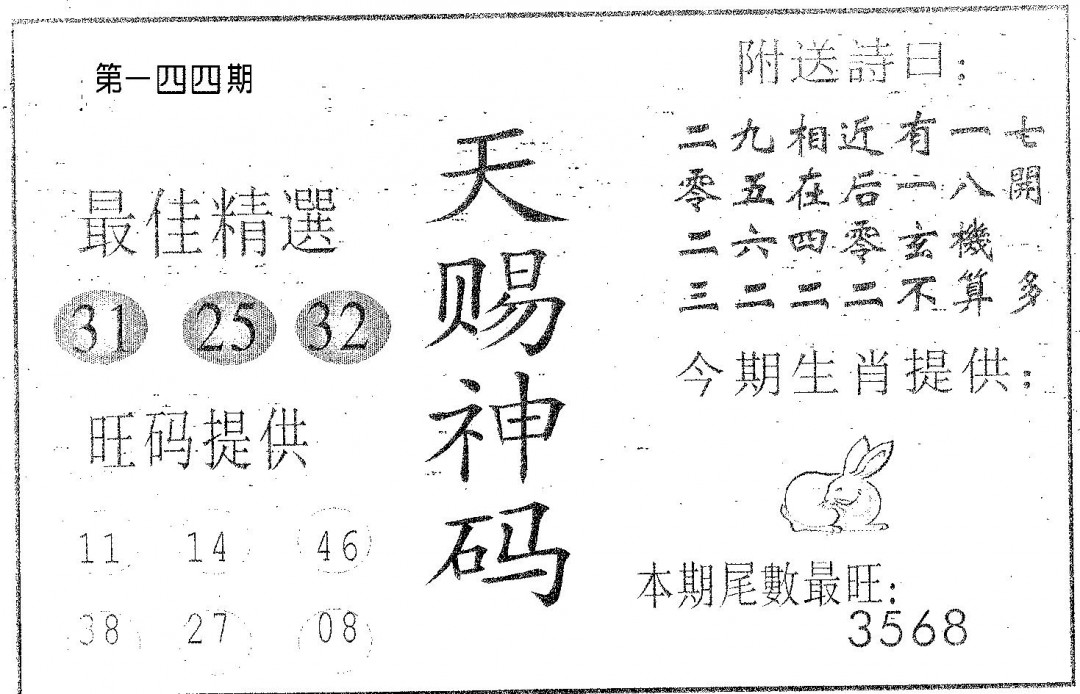 第一四四期
最佳精選
31 25 32
旺码提供
11 14 46
38 27 08
天赐神码
附送詩曰：
二九相近有一七
零五在后一八開
二六四零玄機
三二二二不算多
今期生肖提供：
本期尾數最旺：
3568